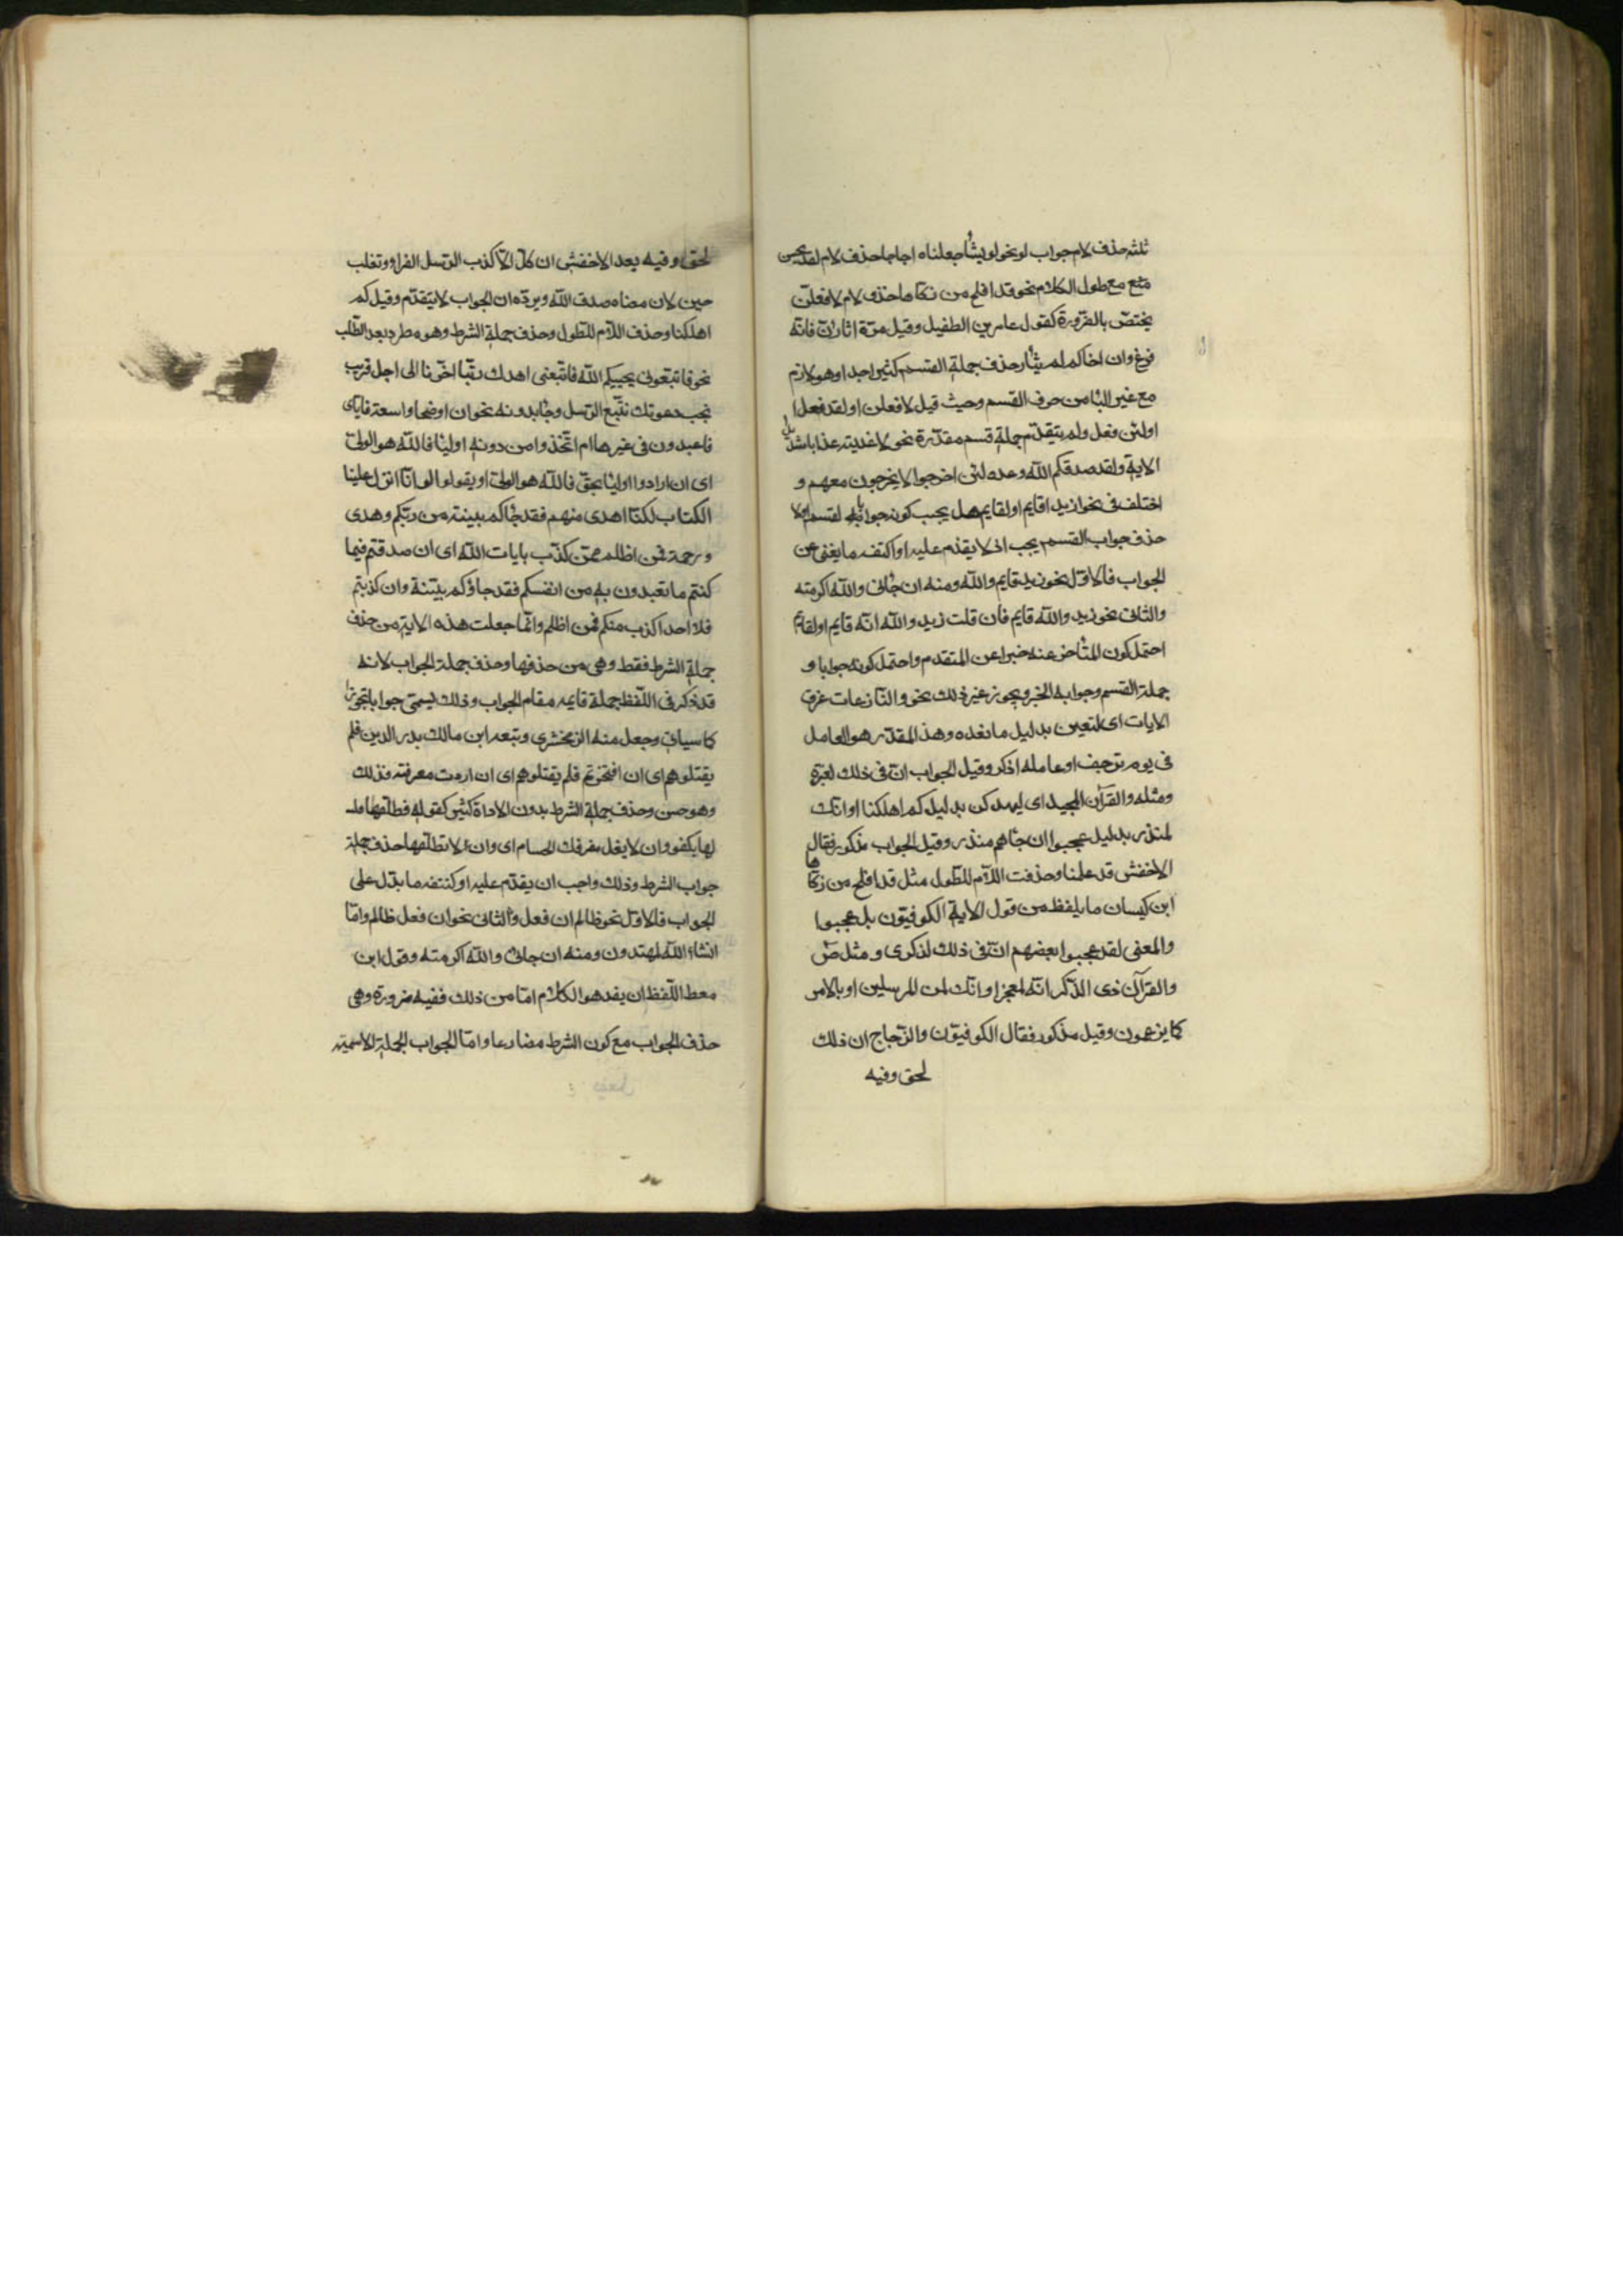 ثلثه حذف لام جواب لو نحو لو يشأ جعلناه اجاجا حذف لام لقد يحسن
مع طول الكلام نحو قد افلح من زكاها حذف لام لافعلن
يختص بالضرورة كقول عامر بن الطفيل وقيل مرة اثارن فانه
فرغ وان اخاكم لم يثأر حذف جملة القسم كثير اجدا وهو لازم
مع غير البا من حرف القسم وحيث قيل لافعلن او لقد فعل
اولئن فعل ولم يتقدم جملة قسم مقدرة نحو لاعذبنه عذابا شديدا
الاية ولقد صدقكم الله وعده لئن اخرجوا لا يخرجون معهم و
اختلف فى نحو ان زيدا قايم او لقايم هل يجب كونه جوابا لقسم اولا
حذف جواب القسم يجب اذا لا يقدم عليه او اكتفه ما يغنى عن
الجواب فالاول نحو زيد قايم والله ومنه ان جائنى والله اكرمته
والثانى نحو زيد والله قايم فان قلت زيد والله انه قايم او لقايم
احتمل كون المتأخر عنه خبرا عن المتقدم واحتمل كونه جوابا و
جملة القسم وجوابه الخبر ويجوز غير ذلك نحو والنازعات غرقا
الايات اى لتبعثن بدليل ما بعده وهذا المقدر هو العامل
فى يوم ترجف او عامله اذكر وقيل الجواب ان فى ذلك لعبرة
ومثله والقرآن المجيد اى ليهلكن بدليل كم اهلكنا او انك
لمنذر بدليل عجبوا ان جاءهم منذر وقيل الجواب مذكور فقال
الاخفش قد علمنا وحذفت اللام للطول مثل قد افلح من زكاها
ابن كيسان ما يلفظ من قول الاية الكوفيون بل عجبوا
والمعنى لقد عجبوا بعضهم ان فى ذلك لذكرى ومثل ص
والقرآن ذى الذكر انه لمعجز او انك لمن المرسلين او بالامر
كما يزعمون وقيل مذكور فقال الكوفيون والزجاج ان ذلك
لحق وفيه
لحق وفيه بعد الاخفش ان كل الا كذب الرسل الفراو وتغلب
حين لان معناه صدق الله ويرده ان الجواب لا يتقدم وقيل كم
اهلكنا وحذف اللام للطول وحذف جملة الشرط وهو مطرد بعد الطلب
نحو فاتبعونى يحببكم الله فاتبعنى اهدك ربنا اخرنا الى اجل قريب
نجب دعوتك نتبع الرسل وجا بدونه نحو ان اوضحا واسعة فاياى
فاعبدون فى غيرها ام اتخذوا من دونه اوليا فالله هو الولى
اى ان ارادوا اوليا بحق فالله هو الولى او يقولوا لو انا انزل علينا
الكتاب لكنا اهدى منهم فقد جاكم بينة من ربكم وهدى
ورحمة فمن اظلم ممن كذب بايات الله اى ان صدقتم فيما
كنتم ما تعبدون به من انفسكم فقد جاؤكم بينة وان كذبتم
فلا احد اكذب منكم فمن اظلم وانما جعلت هذه الاية من حذف
جملة الشرط فقط وهى من حذفها وحذف جملة الجواب لانه
قد ذكر فى اللفظ جملة قايمه مقام الجواب وذلك يسمى جوابا تجوزا
كما سياتى وجعل منه الزمخشرى وتبعه ابن مالك بدر الدين فلم
يقتلوهم اى ان افتخرتم فلم يقتلوهم اى ان اردت معرفته فذلك
وهو حسن وحذف جملة الشرط بدون الاداة كثير كقوله فطلقها فلست
لها بكفو وان لا يعل مفرقك الحسام اى وان لا تطلقها حذف جملة
جواب الشرط وذلك واجب ان يقدم عليه او كنتفه ما يدل على
الجواب فالاول نحو ظالم ان فعل والثانى نحو ان فعل ظالم وانا
انشاء الله لمهتدون ومنه ان جائنى والله اكرمته وقول ابن
معط اللفظ ان يفد هو الكلام اما من ذلك ففيه ضرورة وهى
حذف الجواب مع كون الشرط مضارعا واما الجواب الجملة الاسمية